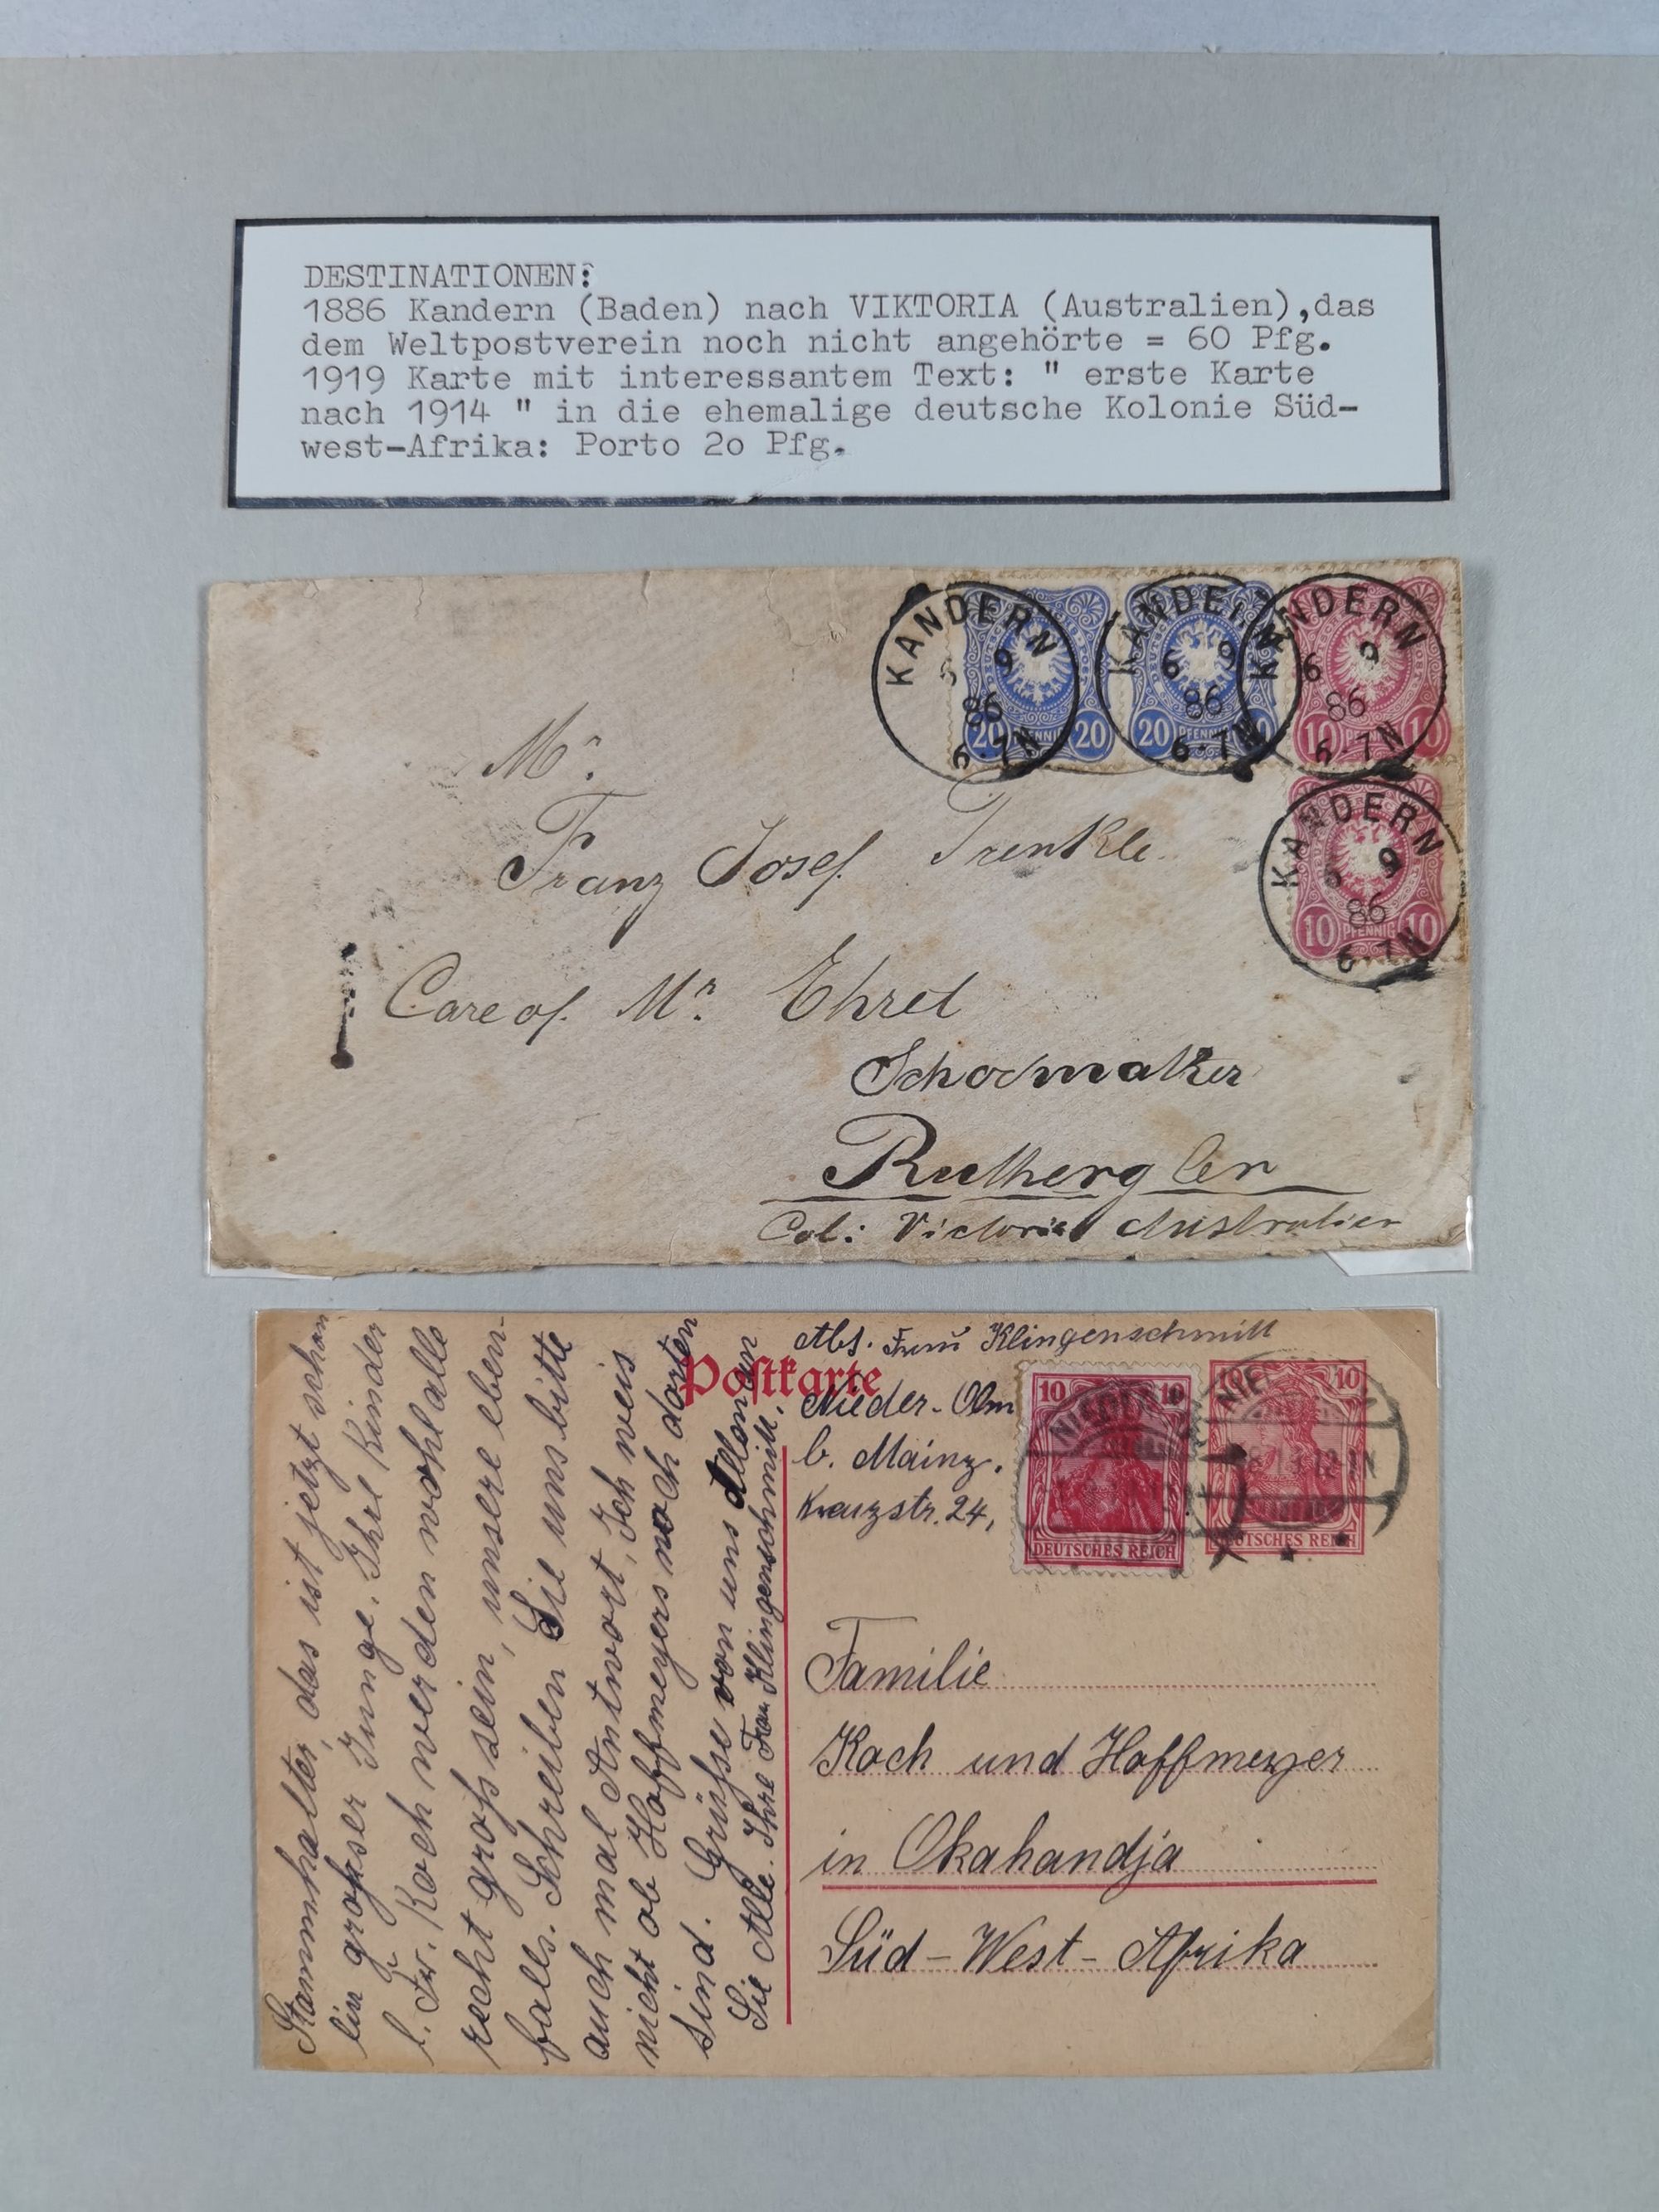 DESTINATIONEN:
1886 Kandern (Baden) nach VIKTORIA (Australien),das
dem Weltpostverein noch nicht angehörte = 60 Pfg.
1919 Karte mit interessantem Text: " erste Karte
nach 1914 " in die ehemalige deutsche Kolonie Süd-
west-Afrika: Porto 2o Pfg.
KANDERN
9
86
6-7N
20 PFENNIG 20
KANDERN
6 9
86
6-7N
20 PFENNIG
KANDERN
6 9
86
6-7N
10 PFENNIG 10
KANDERN
9
86
6-7N
10 PFENNIG 10
Mr.
Franz Josef Trenkle
Care of. Mr. Ehret
Schocmaker
Rutherglen
Col: Victoria Australien
Postkarte
Abs. Frau Klingenschmitt
Nieder-Olm
b. Mainz.
Kreuzstr. 24,
10 10
DEUTSCHES REICH
10 10
DEUTSCHES REICH
12-1N
Familie
Koch und Hoffmeyer
in Okahandja
Süd-West-Afrika
Stammhalter, das ist jetzt schon
ein großser Junge. Ihre Kinder
l. Fr. Koch werden wohl alle
recht groß sein, unsere eben-
falls. Schreiben Sie uns bitte
auch mal Antwort, Ich weis
nicht ob Hoffmeyers noch dorten
sind. Grüße von uns Allen an
Sie Alle. Ihre Frau Klingenschmitt.